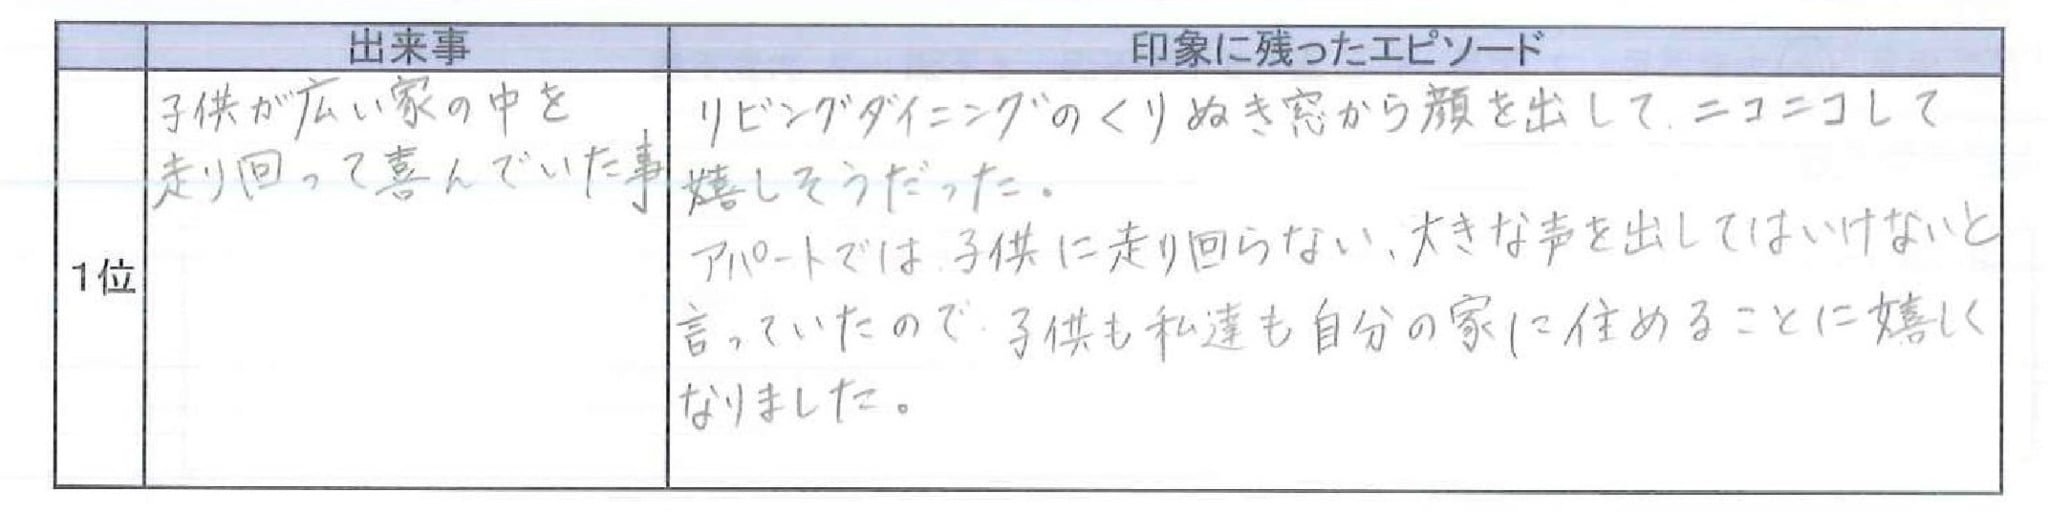 出来事 印象に残ったエピソード
1位
子供が広い家の中を
走り回って喜んでいた事
リビングダイニングのくりぬき窓から顔を出して、ニコニコして
嬉しそうだった。
アパートでは、子供に走り回らない、大きな声を出してはいけないと
言っていたので、子供も私達も自分の家に住めることに嬉しく
なりました。